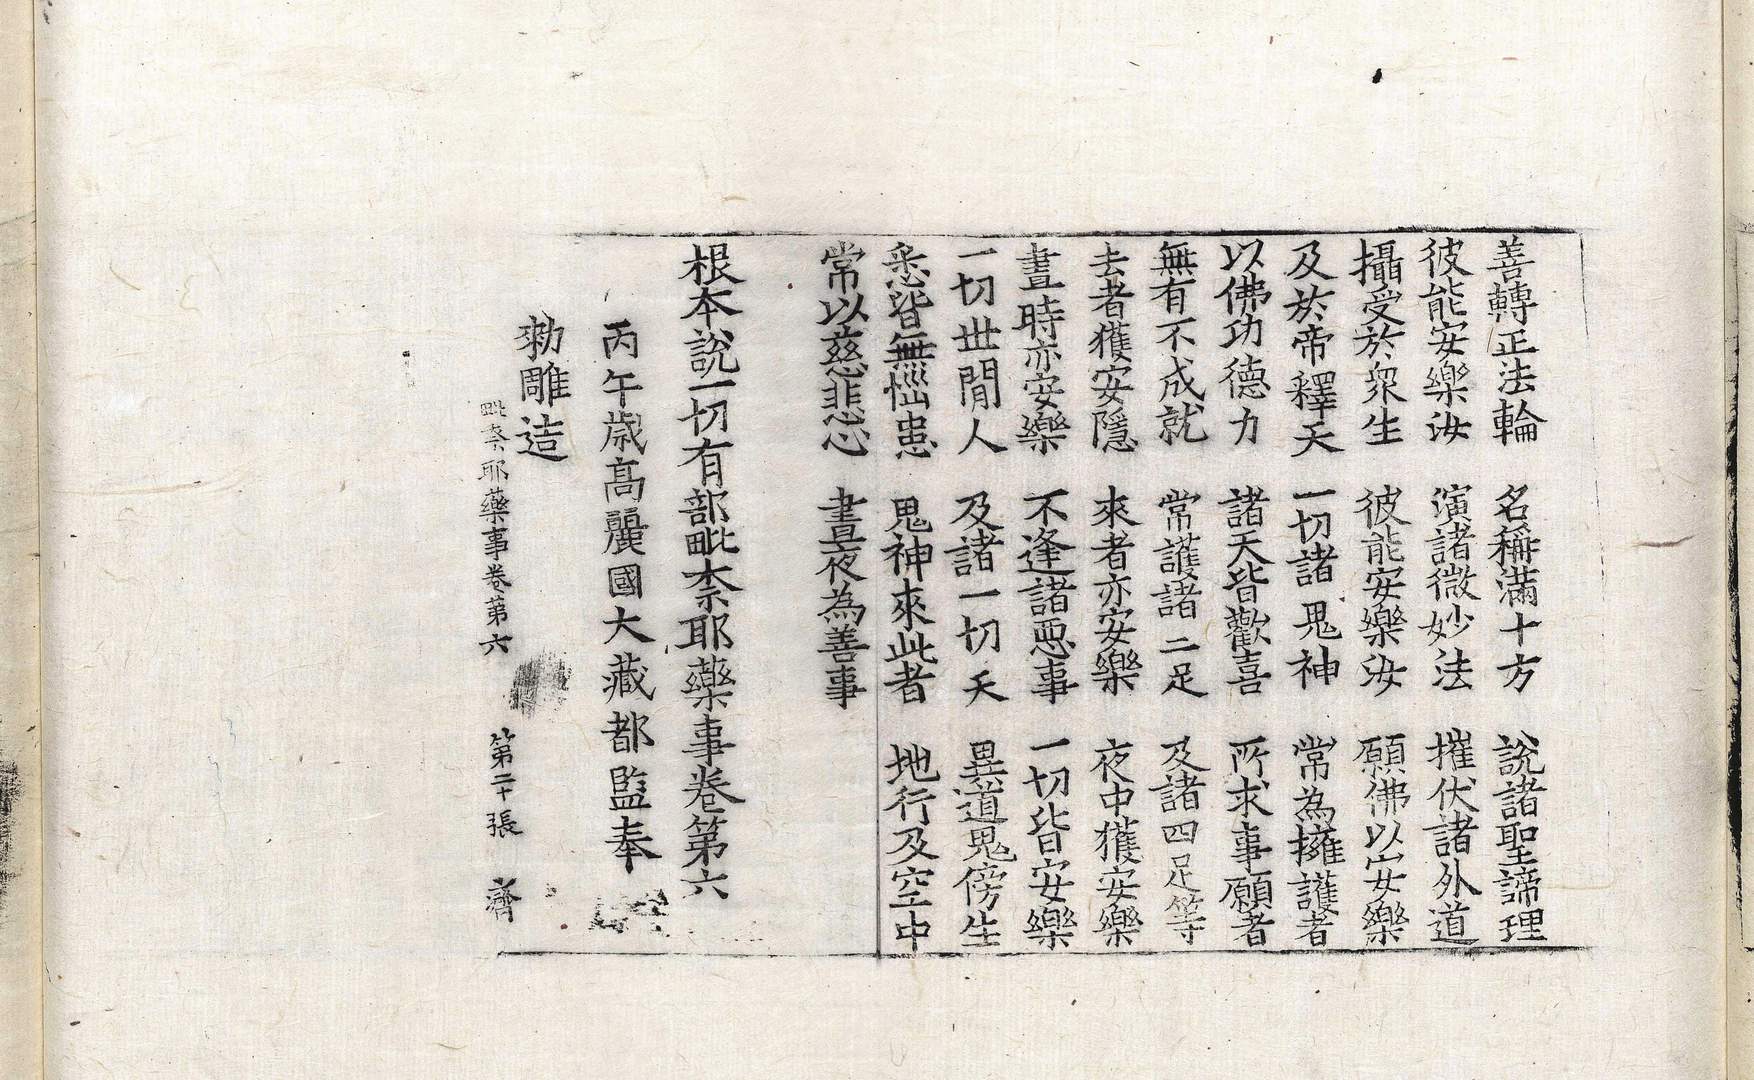 善轉正法輪 名稱滿十方 說諸聖諦理
彼能安樂汝 演諸微妙法 摧伏諸外道
攝受於衆生 彼能安樂汝 願佛以安樂
及於帝釋天 一切諸鬼神 常為擁護者
以佛功德力 諸天皆歡喜 所求事願者
無有不成就 常護諸二足 及諸四足等
去者獲安隱 來者亦安樂 夜中獲安樂
晝時亦安樂 不逢諸惡事 一切皆安樂
一切世間人 及諸一切天 異道鬼傍生
悉皆無惱患 鬼神來此者 地行及空中
常以慈悲心 晝夜為善事
根本說一切有部毗柰耶藥事卷第六
丙午歲高麗國大藏都監奉
勑雕造
毗柰耶藥事卷第六 第二十張 濟